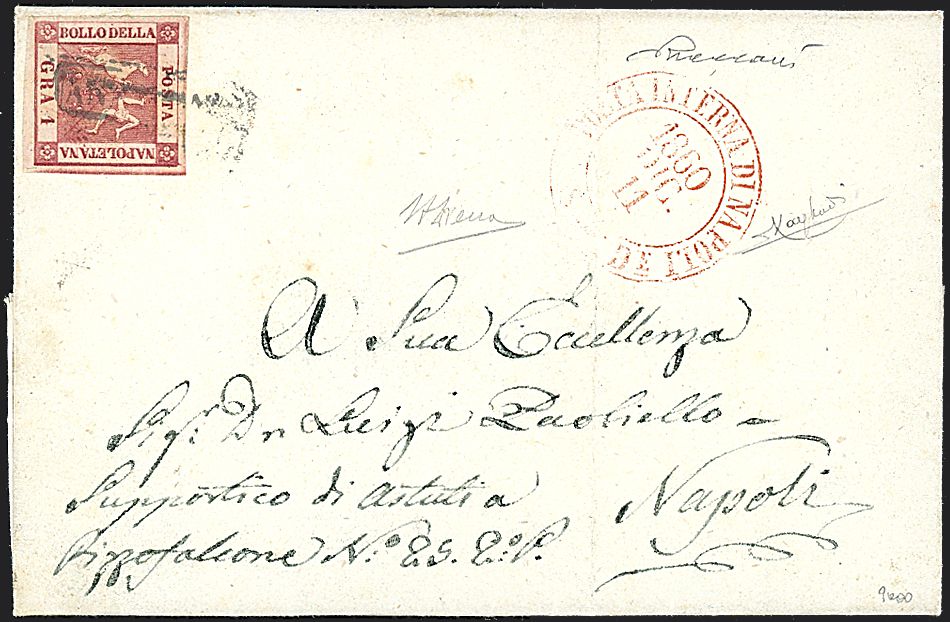 BOLLO DELLA
POSTA
NAPOLETANA
GRA 1
POSTA INTERNA DI NAPOLI E G
1860
DIC.
11
A Sua Eccellenza
Sig.r Dn Luigi Paoliello -
Supportico di astuti a
Pizzofalcone N.o 25. 2.o P.
Napoli
9400